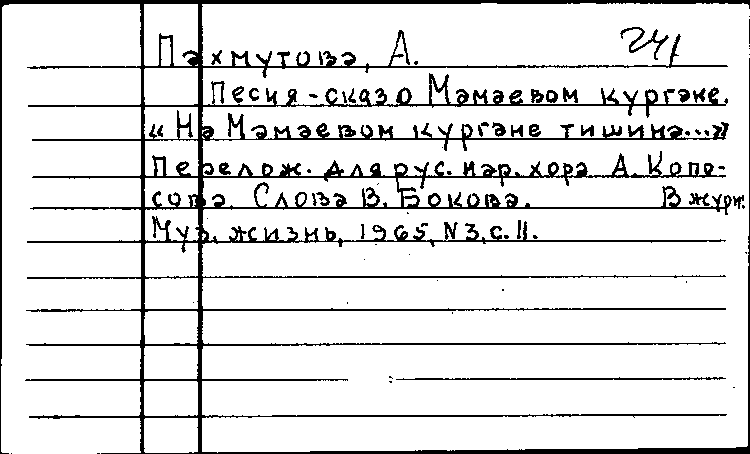 Пахмутова, А. 241
Песня-сказ о Мамаевом кургане.
«На Мамаевом кургане тишина...»
Перелож. для рус. нар. хора А. Копо-
сова. Слова В. Бокова. В журн.
Муз. жизнь, 1965, N3, с. 11.